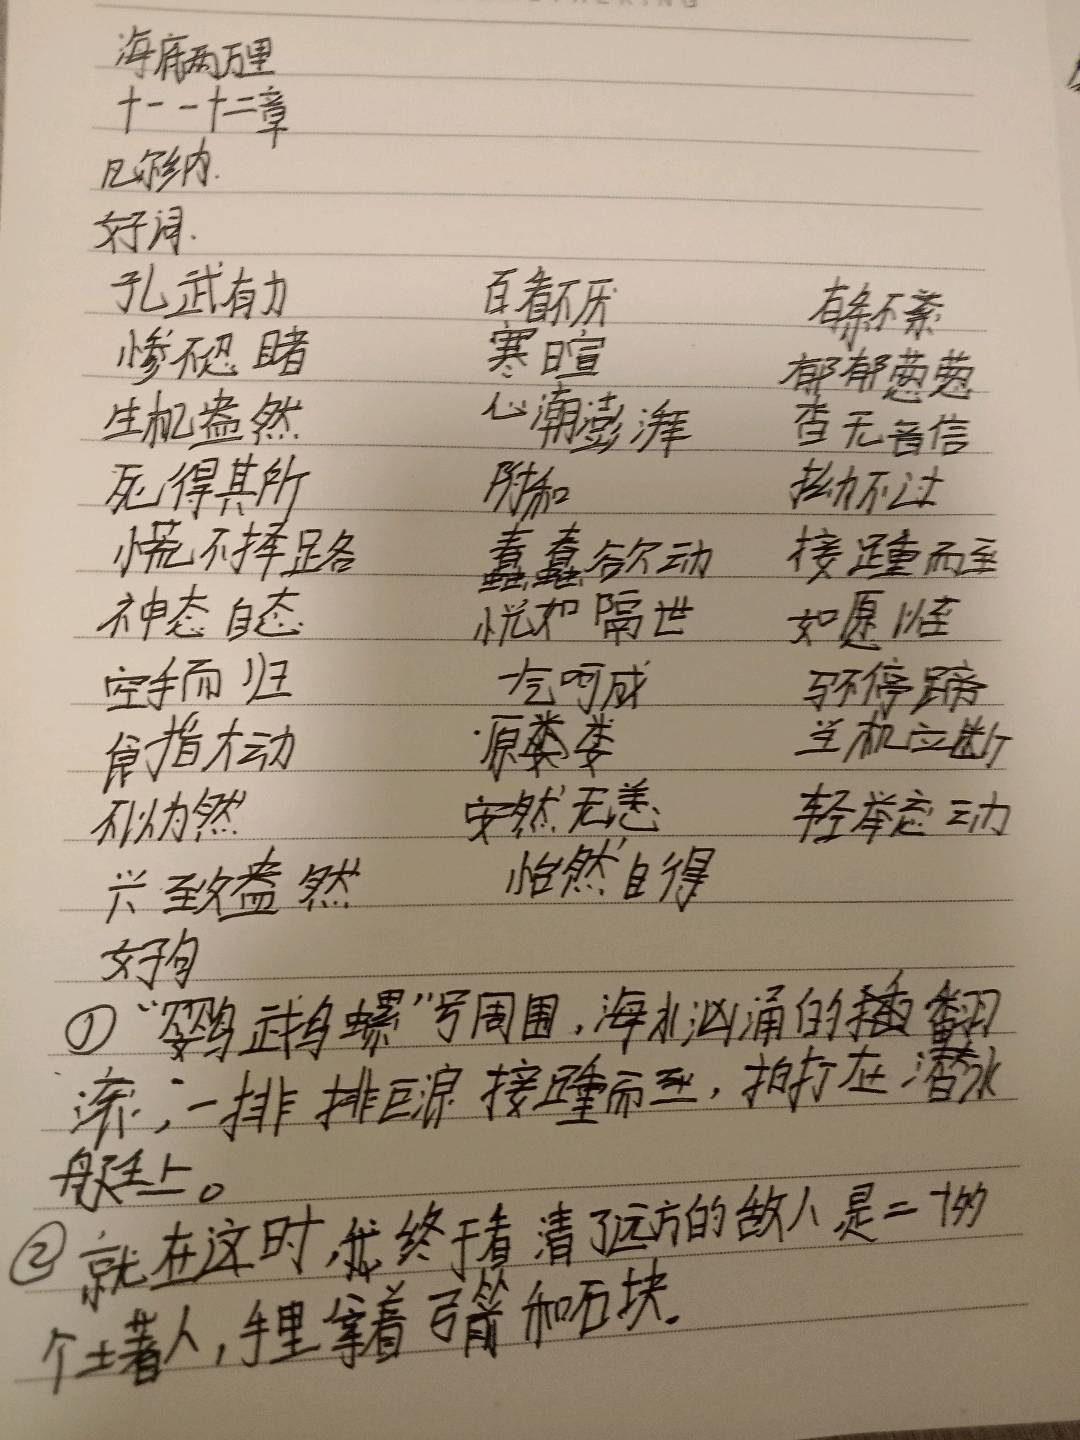 海底两万里
十一一十二章
凡尔纳.
好词.
孔武有力 百看不厌 有条不紊
惨不忍睹 寒暄 郁郁葱葱
生机盎然 心潮澎湃 杳无音信
死得其所 附和 拗不过
慌不择路 蠢蠢欲动 接踵而至
神态自态 恍如隔世 如愿以至
空手而归 一气呵成 马不停蹄
食指大动 源娄娄 当机立断
不以为然 安然无恙 轻举妄动
兴致盎然 怡然自得
好句
①“鹦鹉螺”号周围,海水汹涌的翻
流;一排排巨浪接踵而至,拍打在潜水
艇上。
②就在这时,我终于看清了远方的敌人是二十多
个土著人,手里拿着弓箭和石块.